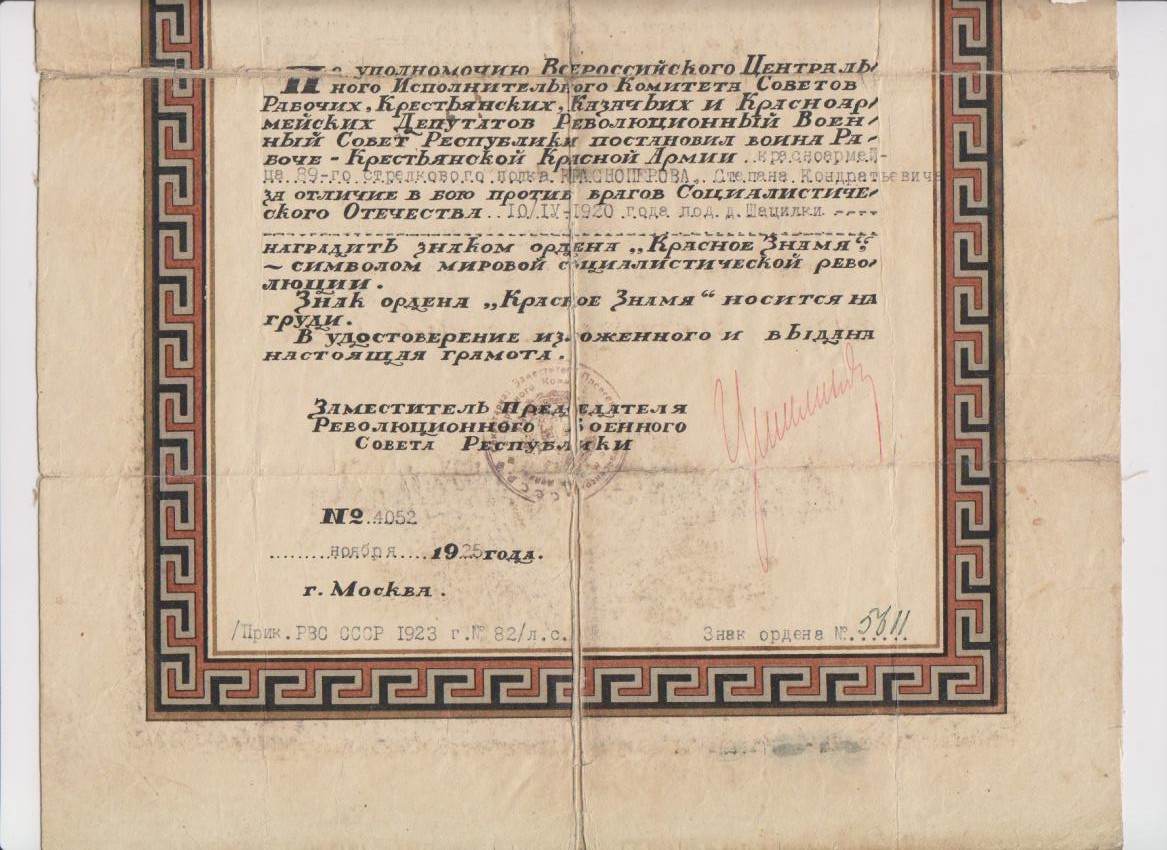 По уполномочию Всероссийского Централь-
ного Исполнительного Комитета Советов
Рабочих, Крестьянских, Казачьих и Красноар-
мейских Депутатов Революционный Воен-
ный Совет Республики постановил воина Ра-
боче-Крестьянской Красной Армии..красноармей-
ца 89-го стрелкового полка КРАСНОПЕРОВА, Степана Кондратьевича
за отличие в бою против врагов Социалистиче-
ского Отечества..10/IV-1920 года под д. Шацилки.----
наградить знаком ордена „Красное Знамя“,
~ символом мировой социалистической рево-
люции.
Знак ордена „Красное Знамя“ носится на
груди.
В удостоверение изложенного и выдана
настоящая грамота.
Заместитель Председателя
Революционного Военного
Совета Республики
№ 4052
ноября 1925 года.
г. Москва.
/Прик.РВС СССР 1923 г.№ 82/л.с.
Знак ордена №.5611